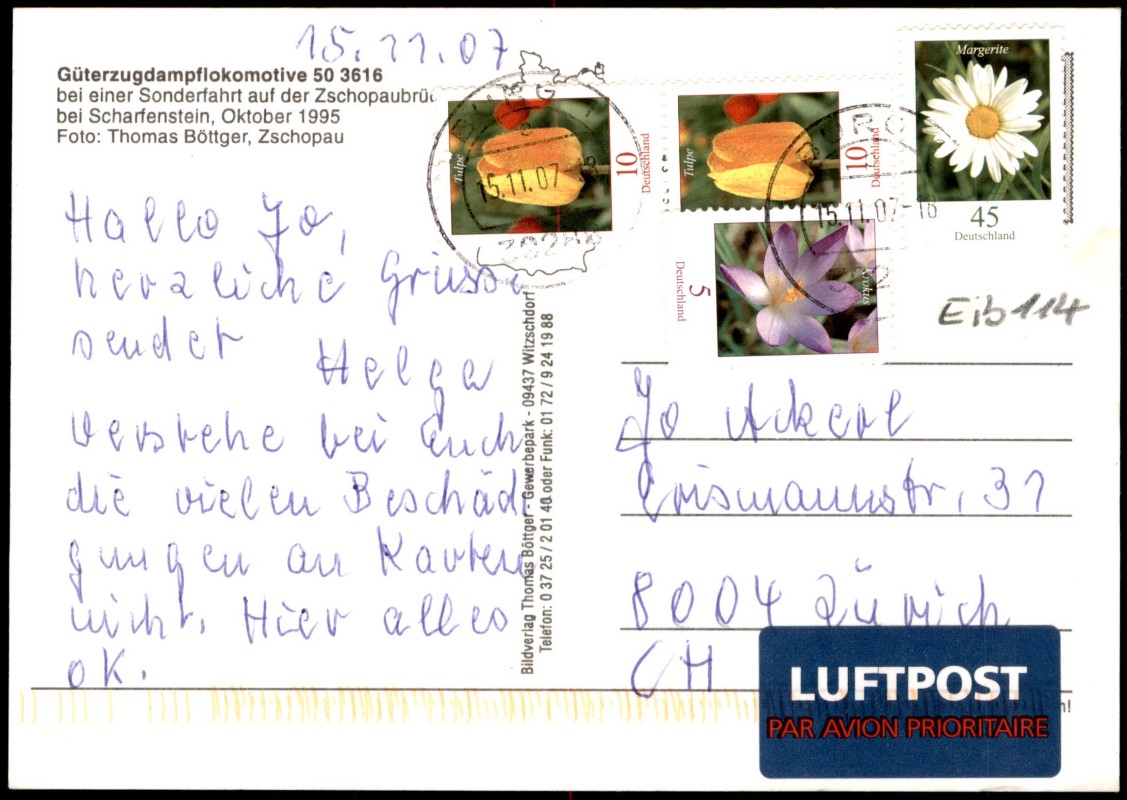 15.11.07
Güterzugdampflokomotive 50 3616
bei einer Sonderfahrt auf der Zschopaubrü
bei Scharfenstein, Oktober 1995
Foto: Thomas Böttger, Zschopau
Hallo Jo,
herzliche Grüsse
sendet Helga
Verstehe bei Euch
die vielen Beschädi
gungen an Karten
nicht. Hier alles
OK.
Bildverlag Thomas Böttger - Gewerbepark - 09437 Witzschdorf
Telefon: 0 37 25 / 2 01 40 oder Funk: 01 72 / 9 24 19 88
Tulpe
10
Deutschland
15.11.07-18
Tulpe
10
Deutschland
15.11.07-18
Margerite
45
Deutschland
Krokus
5
Deutschland
Eib114
Jo Ackerl
Erismannstr. 31
8004 Zürich
CH
LUFTPOST
PAR AVION PRIORITAIRE